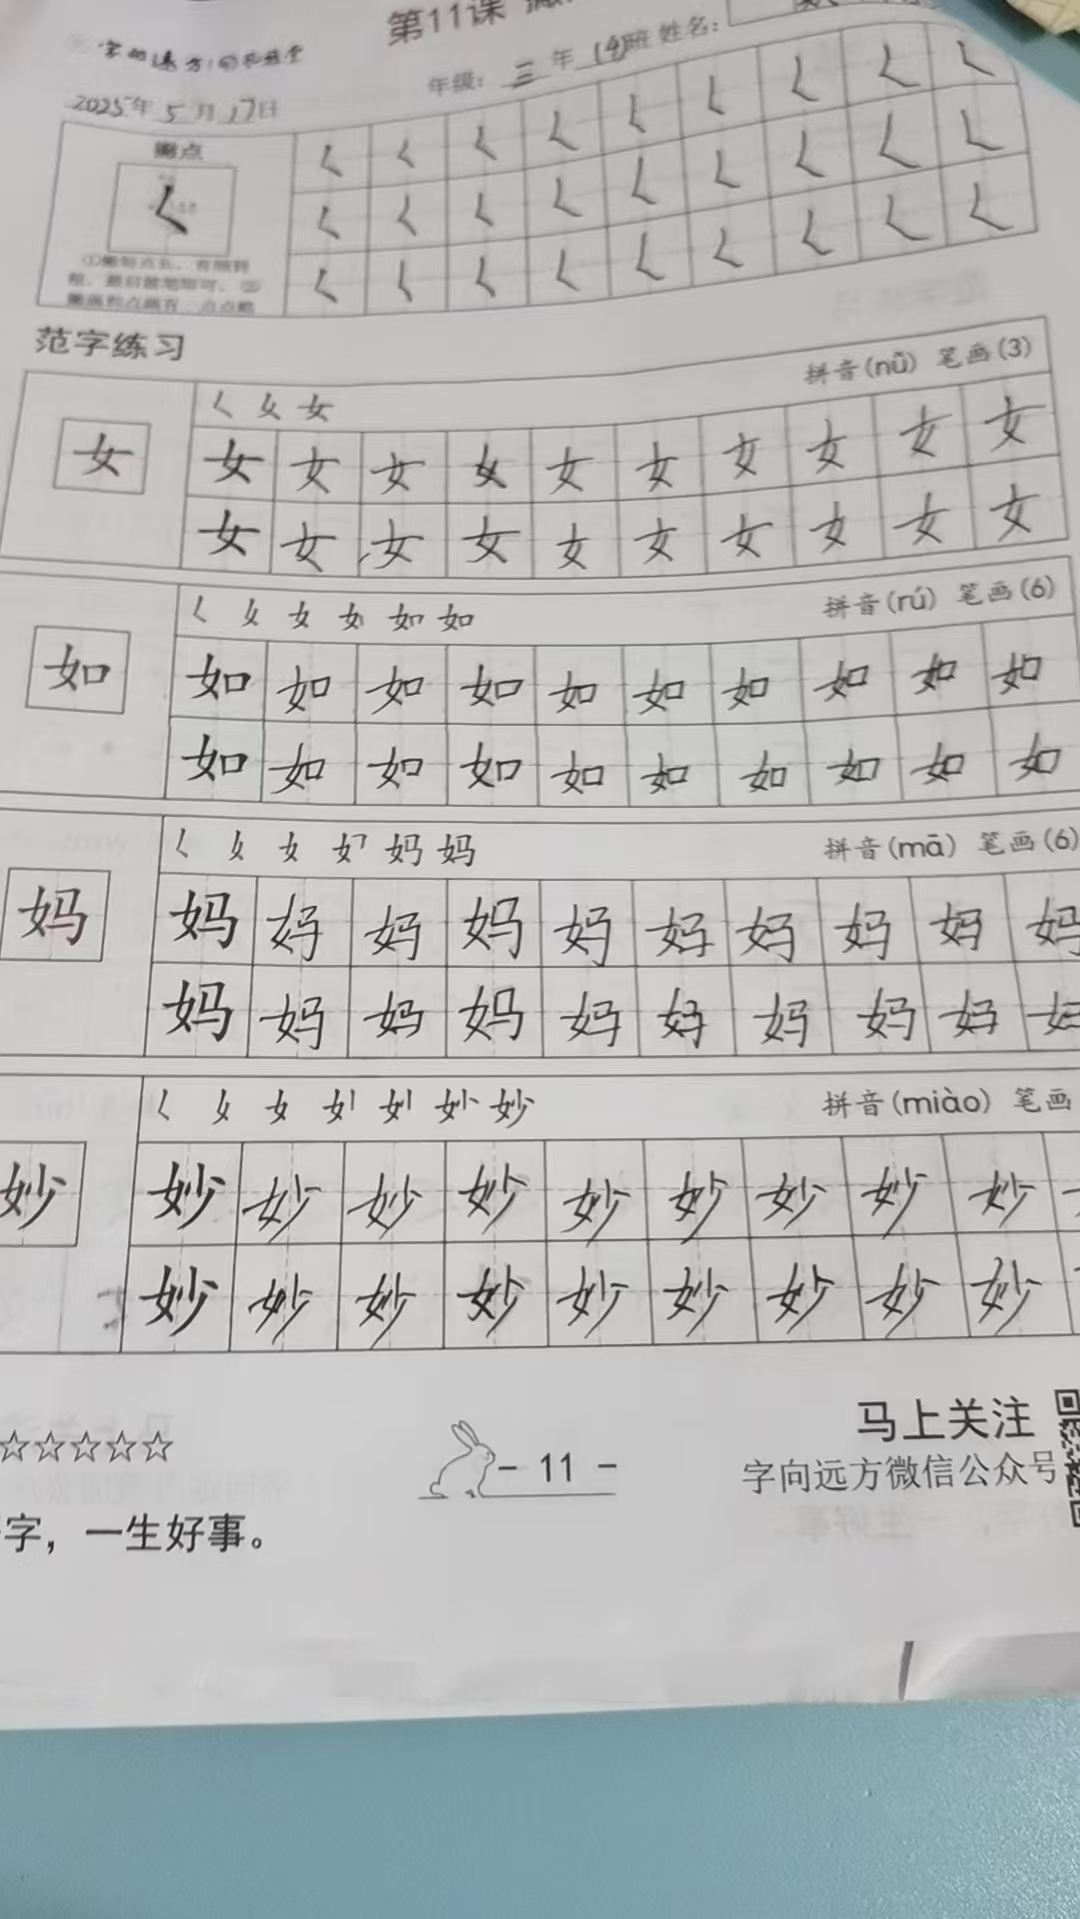 第11课
年级：三年(4)班 姓名：
2025年5月17日
撇点
く く く く く く く く く
く く く く く く く く く く
く く く く く く く く く
范字练习
拼音(nǚ) 笔画(3)
く 女 女
女 女 女 女 女 女 女 女 女 女 女
女 女 女 女 女 女 女 女 女 女
拼音(rú) 笔画(6)
く 女 女 如 如
如 如 如 如 如 如 如 如 如 如 如
如 如 如 如 如 如 如 如 如 如
拼音(mā) 笔画(6)
く 女 女 妈 妈
妈 妈 妈 妈 妈 妈 妈 妈 妈 妈 妈
妈 妈 妈 妈 妈 妈 妈 妈 妈 妈
拼音(miào) 笔画
く 女 女 妙
妙 妙 妙 妙 妙 妙 妙 妙 妙 妙
妙 妙 妙 妙 妙 妙 妙 妙 妙
☆☆☆☆☆
字，一生好事。
- 11 -
马上关注
字向远方微信公众号